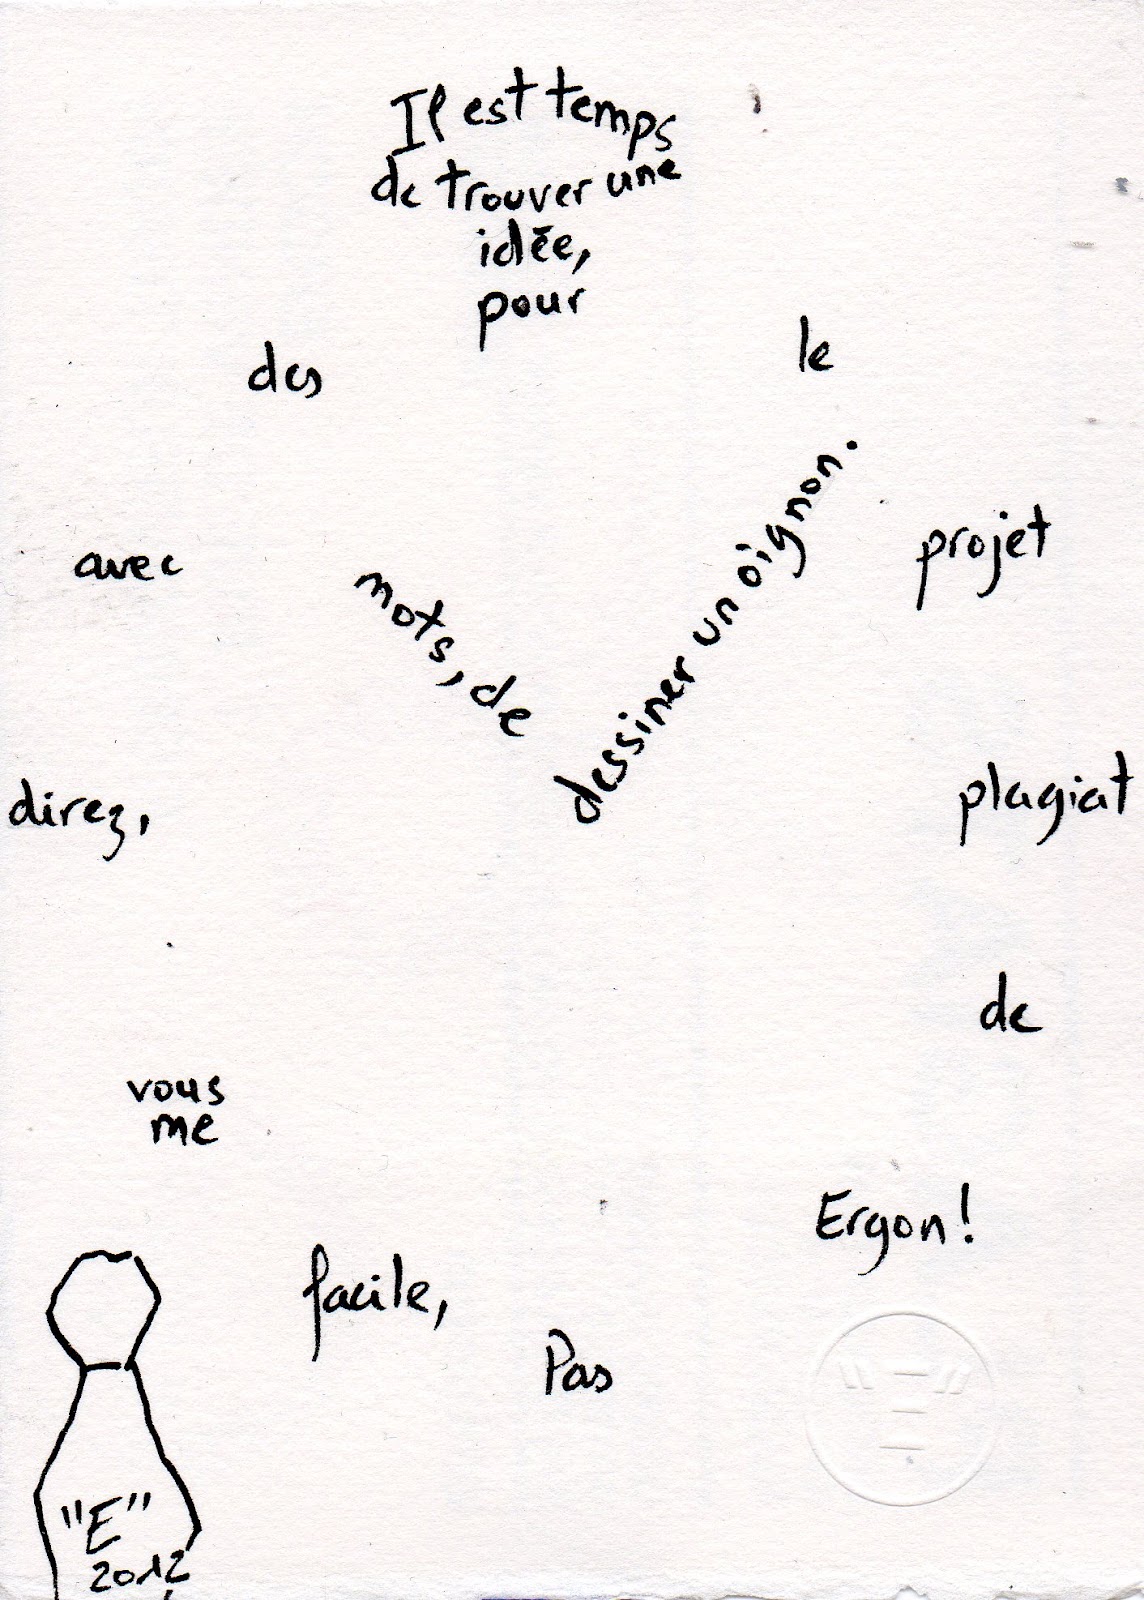 Il est temps
de trouver une
idée,
pour
le
projet
plagiat
de
Ergon!
Pas
facile,
vous
me
direz,
avec
des
mots, de
dessiner un oignon.
"E"
2012